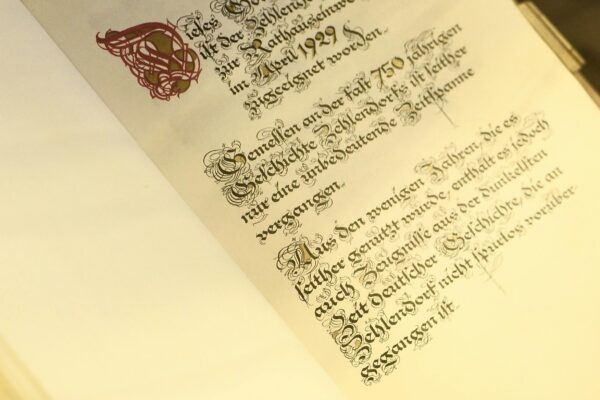 Dieses
ist der Zehlend
zur Rathauseinw
im April 1929
zugeeignet worden.
Gemessen an der fast 750 jährigen
Geschichte Zehlendorfs ist seither
nur eine unbedeutende Zeitspanne
vergangen.
Aus den wenigen Jahren, die es
seither genutzt wurde, enthält es jedoch
auch Zeugnisse aus der dunkelsten
Zeit deutscher Geschichte, die an
Zehlendorf nicht spurlos vorüber-
gegangen ist.